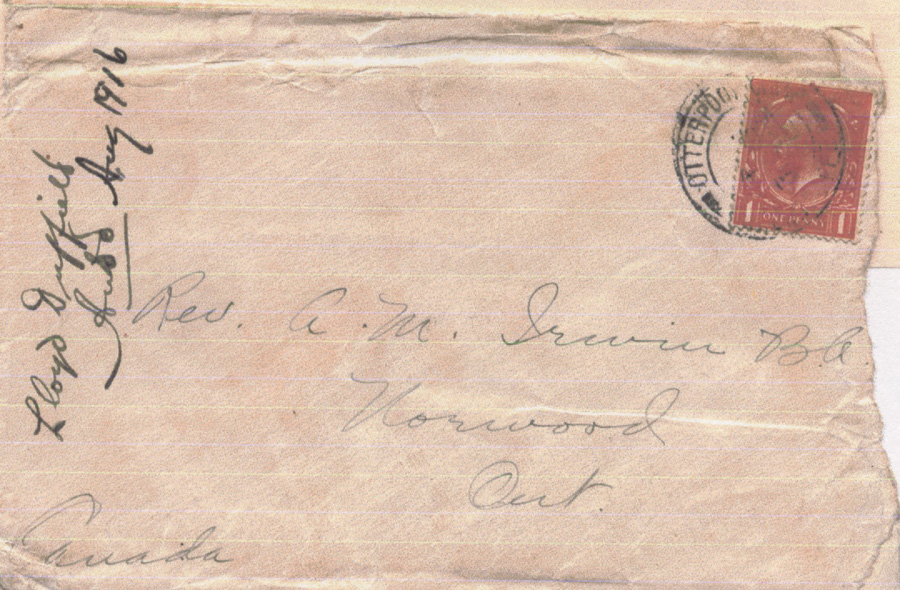 Lloyd Duffield
Aug 1916
OTTERPOOL
1 ONE PENNY 1
Rev. A. M. Irwin
Norwood
Ont.
Canada